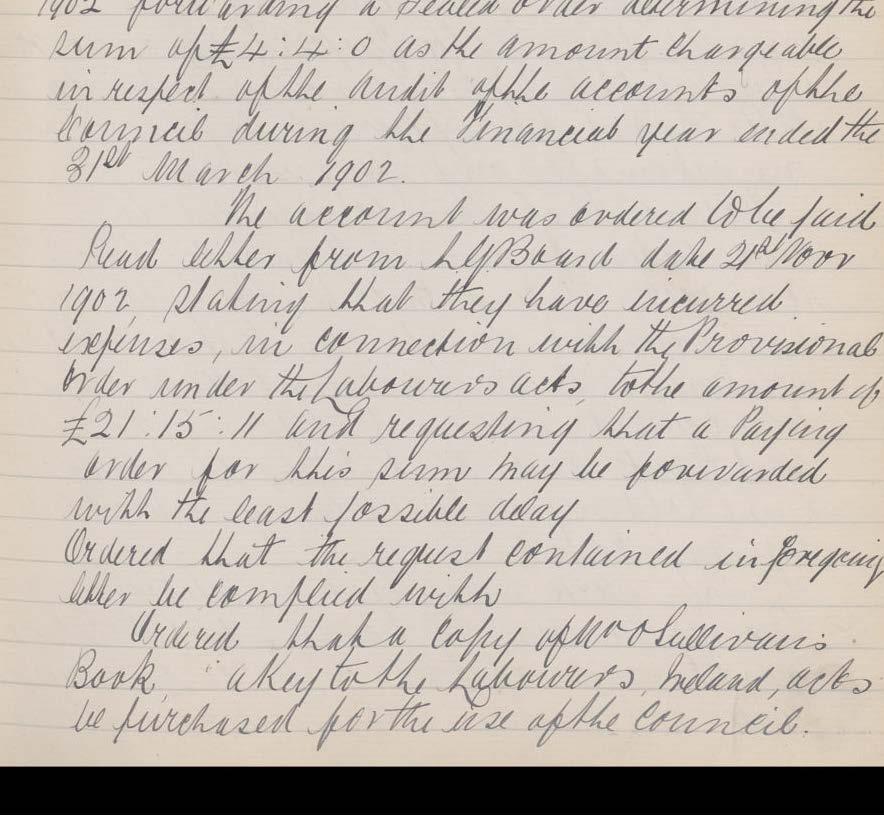 1902 forwarding a sealed order determining the
sum of £4:4:0 as the amount chargeable
in respect of the audit of the accounts of the
Council during the Financial year ended the
31st March 1902.
The account was ordered to be paid
Read letter from LGBoard date 21st Novr
1902, stating that they have incurred
expenses, in connection with the Provisional
Order under the Labourers acts, to the amount of
£21:15:11 and requesting that a Paying
order for this sum may be forwarded
with the least possible delay
Ordered that the request contained in foregoing
letter be complied with
Ordered that a copy of OSullivans
Book, "a Key to the Labourers, Ireland, acts
be purchased for the use of the Council.